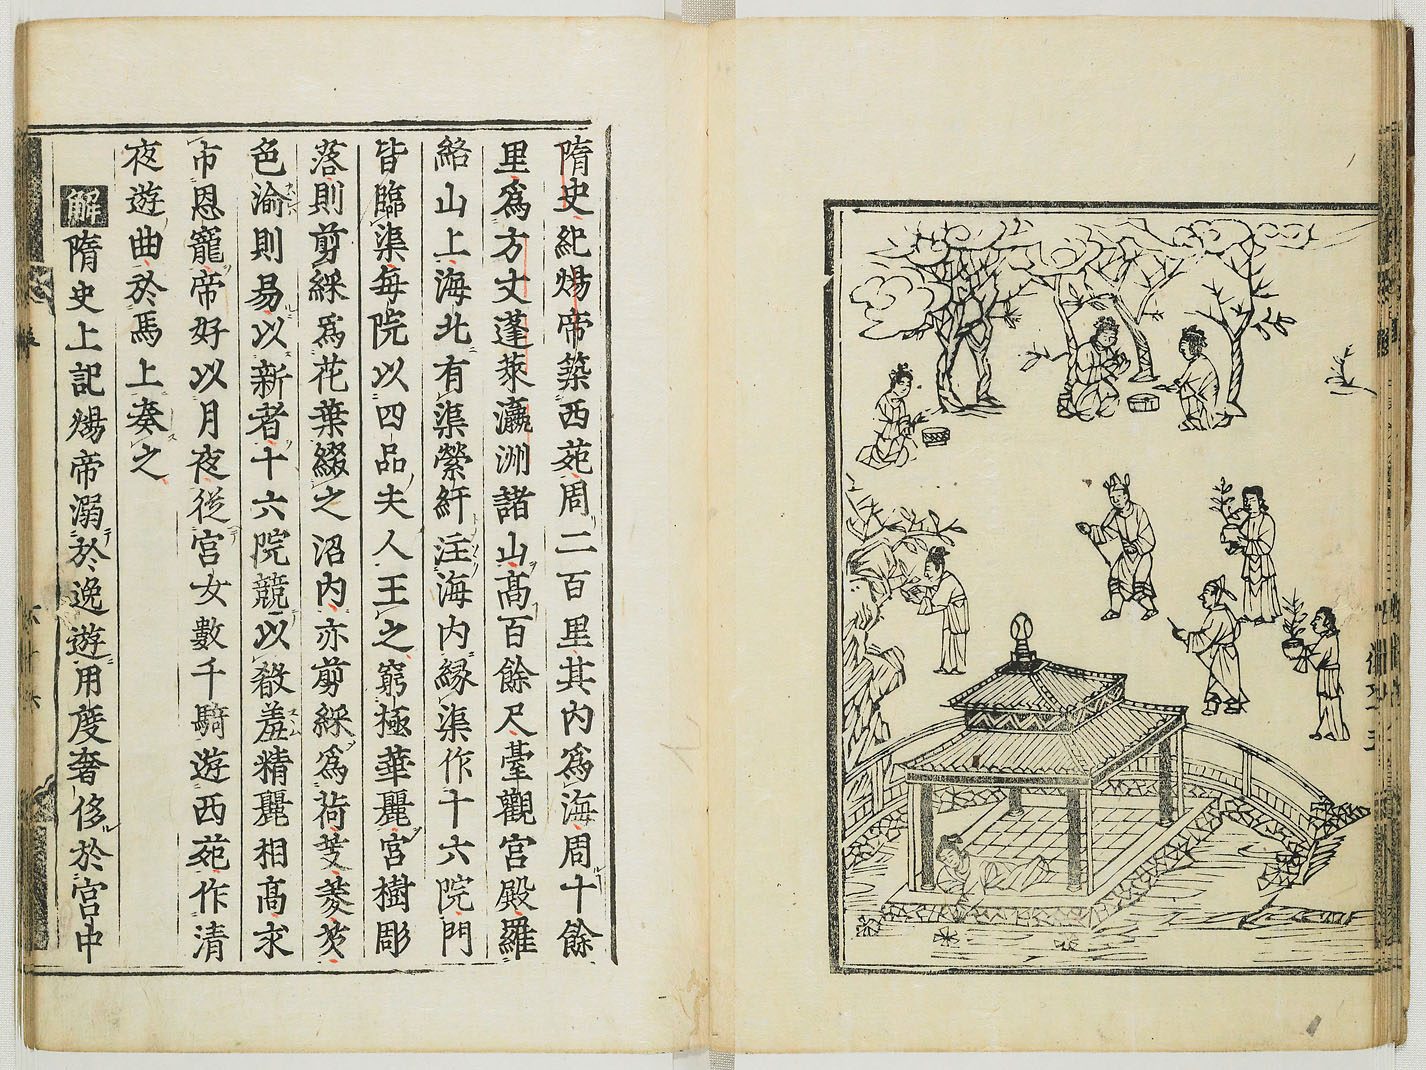 隋史紀煬帝築西苑周二百里其內爲海周十餘
里爲方丈蓬萊瀛洲諸山高百餘尺臺觀宮殿羅
絡山上海北有渠縈紆注海內緣渠作十六院門
皆臨渠每院以四品夫人主之窮極華麗宮樹彫
落則剪綵爲花葉綴之沼內亦剪綵爲荷芰菱芡
色渝則易以新者十六院競以殽羞精麗相高求
市恩寵帝好以月夜從宮女數千騎遊西苑作清
夜遊曲於馬上奏之
解隋史上記煬帝溺於逸遊用度奢侈於宮中